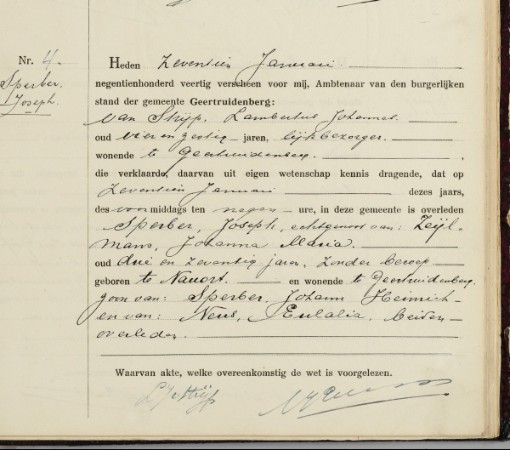 Nr. 4.
Sperber.
Joseph.
Heden zeventien Januari
negentienhonderd veertig verscheen voor mij, Ambtenaar van den burgerlijken
stand der gemeente Geertruidenberg:
van Strijp, Lambertus Johannes
oud vier en zestig jaren, lijkbezorger,
wonende te Geertruidenberg
die verklaarde, daarvan uit eigen wetenschap kennis dragende, dat op
zeventien Januari dezes jaars,
des voormiddags ten negen ure, in deze gemeente is overleden
Sperber, Joseph, echtgenoot van: Zeijl-
mans, Johanna Maria.
oud drie en zeventig jaren, zonder beroep
geboren te Nauort. en wonende te Geertruidenberg
zoon van: Sperber, Johann Heinrich
en van: Neus, Eulalia, beiden
overleden.
Waarvan akte, welke overeenkomstig de wet is voorgelezen.